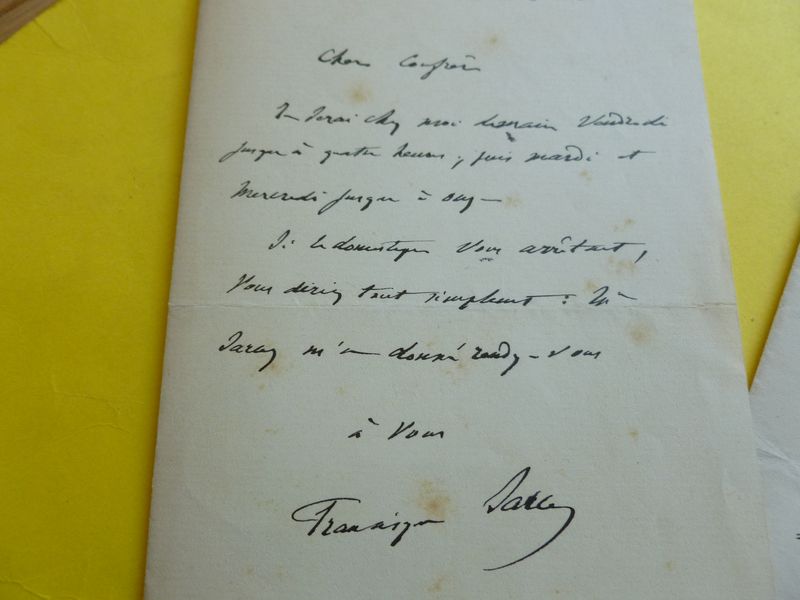 Cher Confrère
Je serai chez moi demain Vendredi
jusqu'à quatre heures, puis mardi et
Mercredi jusqu'à onze
Si le domestique vous arrêtait,
Vous diriez tout simplement : Mr
Sarcey m'a donné rendez-vous
à Vous
Francisque Sarcey